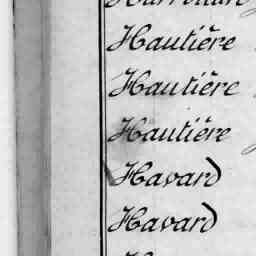 Hautière
Hautière
Hautière
Havard
Havard